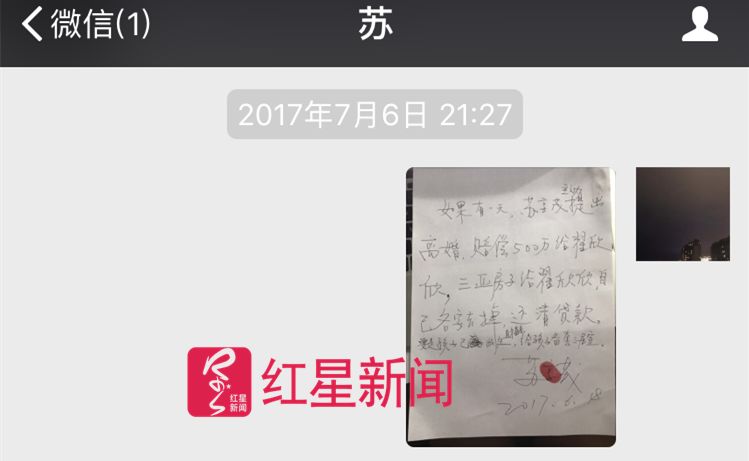 微信(1)
苏
2017年7月6日 21:27
主动
如果有一天，苏享茂提出
离婚，赔偿500万给翟欣
欣。三亚房子给翟欣欣，自
己名字去掉，还清贷款。
孩子已出生，给孩子
苏享茂
2017.6.18
红星新闻
红星新闻